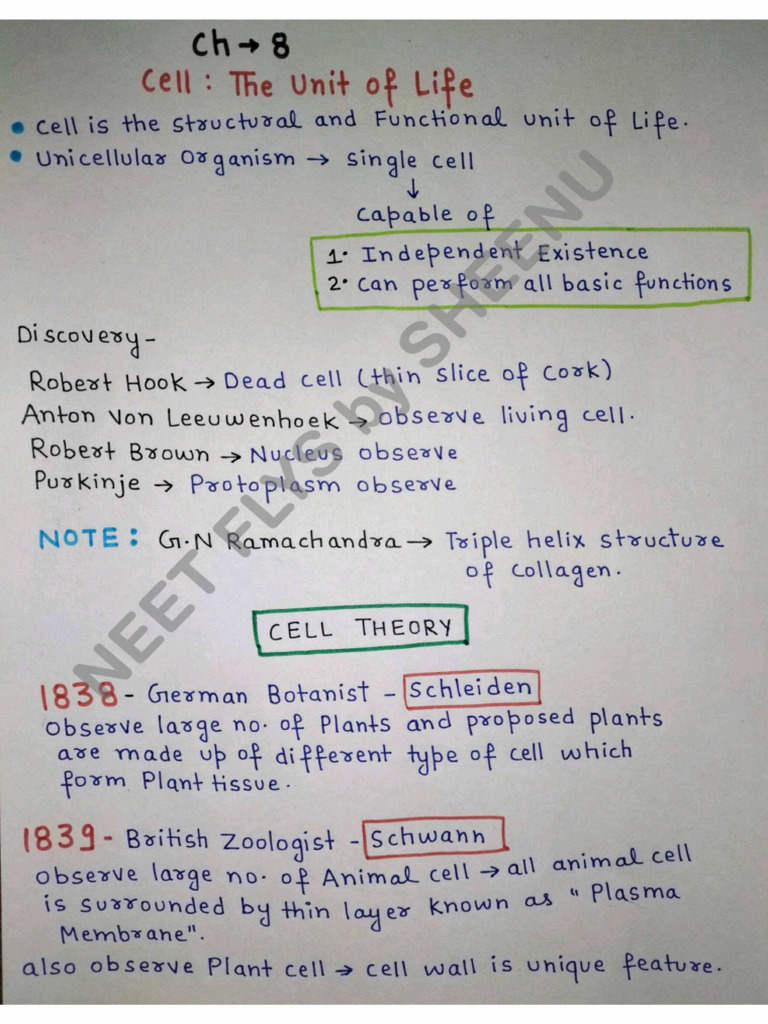 Ch → 8
Cell : The Unit of Life
• Cell is the structural and Functional unit of Life.
• Unicellular Organism → single cell
↓
Capable of
1. Independent Existence
2. Can perform all basic functions
Discovery-
Robert Hook → Dead cell (thin slice of Cork)
Anton Von Leeuwenhoek → observe living cell.
Robert Brown → Nucleus observe
Purkinje → Protoplasm observe
NOTE: G.N Ramachandra → Triple helix structure
of collagen.
CELL THEORY
1838 - German Botanist - Schleiden
observe large no. of Plants and proposed plants
are made up of different type of cell which
form Plant tissue.
1839 - British Zoologist - Schwann
observe large no. of Animal cell → all animal cell
is surrounded by thin layer known as " Plasma
Membrane".
also observe Plant cell → cell wall is unique feature.
NEET FLYS by SHEENU